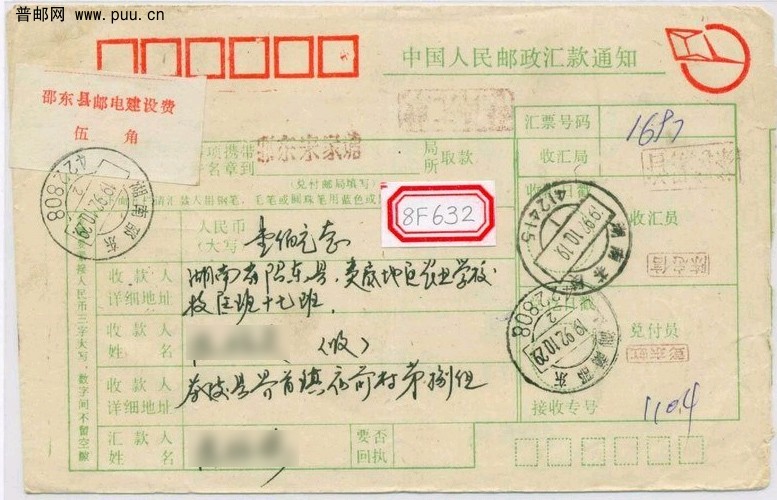 普邮网 www.puu.cn
中国人民邮政汇款通知
邵东县邮电建设费
伍 角
汇票号码
1697
收汇局
局所 取款
名章到
(兑付邮局填写)
请汇款人用钢笔、毛笔或圆珠笔用蓝色或
8F632
收汇员
人民币
(大写)
壹佰元整
收款人
详细地址
湖南省邵东县,娄底地区农业学校
收款人
姓名
(收)
兑付员
汇款人
详细地址
茶陵县界首镇
村第捌组
接收专号
1104
汇款人
姓名
要否
回执
人民币三字大写,数字间不留空隙
湖南邵东
1992.10.29
2
422808
412415
1
1992.10.19
湖南茶陵
湖南邵东
1992.10.29
2
422808